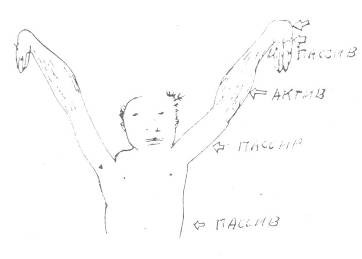 ПАССИВ
АКТИВ
ПАССИВ
ПАССИВ